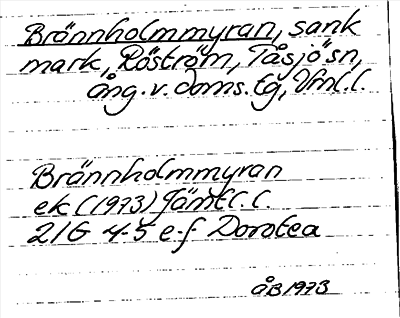 Brännholmmyran, sank
mark, Röström, Tåsjö sn,
ång. v. doms. tg, Vrnl. l.
Brännholmmyran
ek (1973) Jämtl. l.
21G 4-5 e-f Dorotea
ÅB 1973